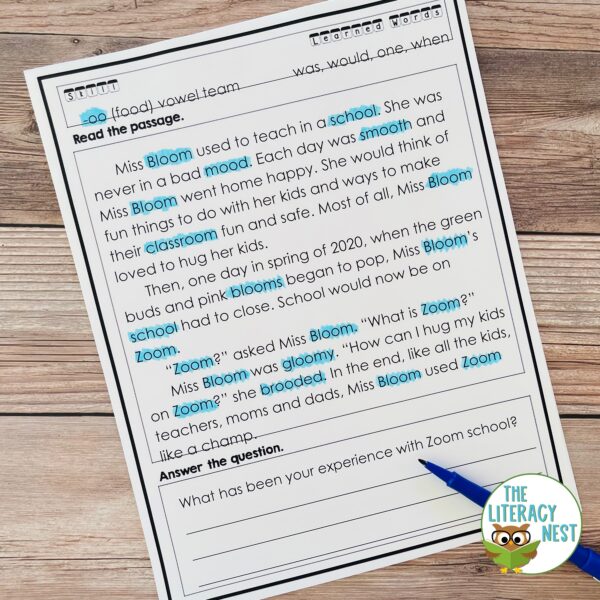 Skill
Learned Words
-oo (food) vowel team
was, would, one, when
Read the passage.
Miss Bloom used to teach in a school. She was
never in a bad mood. Each day was smooth and
Miss Bloom went home happy. She would think of
fun things to do with her kids and ways to make
their classroom fun and safe. Most of all, Miss Bloom
loved to hug her kids.
Then, one day in spring of 2020, when the green
buds and pink blooms began to pop, Miss Bloom's
school had to close. School would now be on
Zoom.
"Zoom?" asked Miss Bloom. "What is Zoom?"
Miss Bloom was gloomy. "How can I hug my kids
on Zoom?" she brooded. In the end, like all the kids,
teachers, moms and dads, Miss Bloom used Zoom
like a champ.
Answer the question.
What has been your experience with Zoom school?
THE
LITERACY
NEST